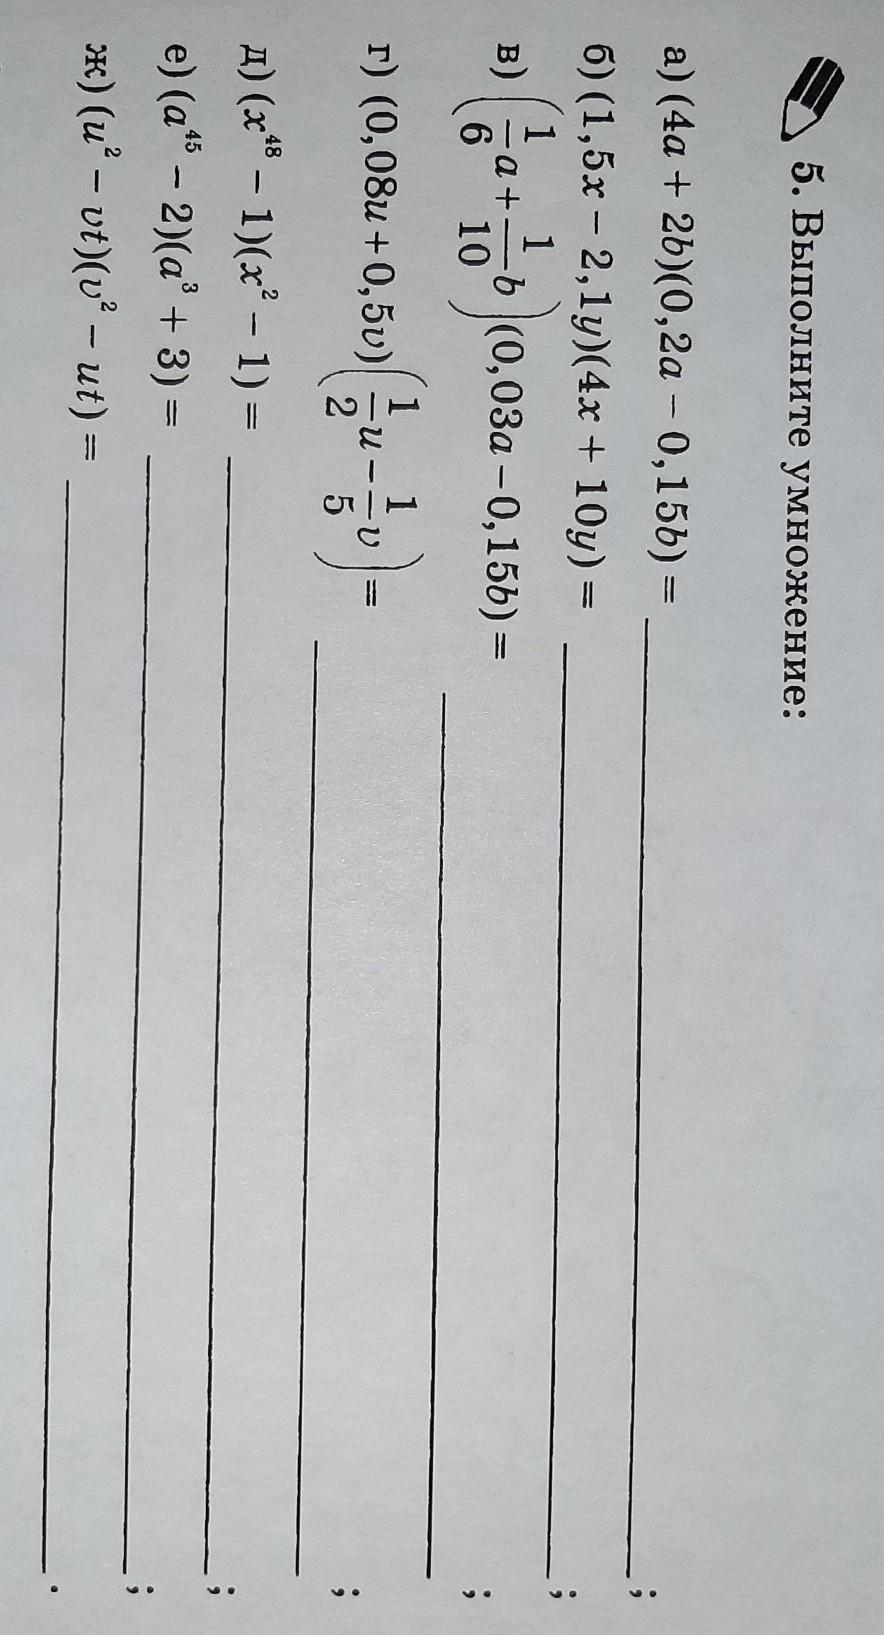 5. Выполните умножение:
а) (4a + 2b)(0,2a – 0,15b) = ;
б) (1,5x – 2,1y)(4x + 10y) = ;
в) (1/6 a + 1/10 b)(0,03a – 0,15b) = ;
г) (0,08u + 0,5v)(1/2 u – 1/5 v) = ;
д) (x⁴⁸ – 1)(x² – 1) = ;
е) (a⁴⁵ – 2)(a³ + 3) = ;
ж) (u² – vt)(v² – ut) = .